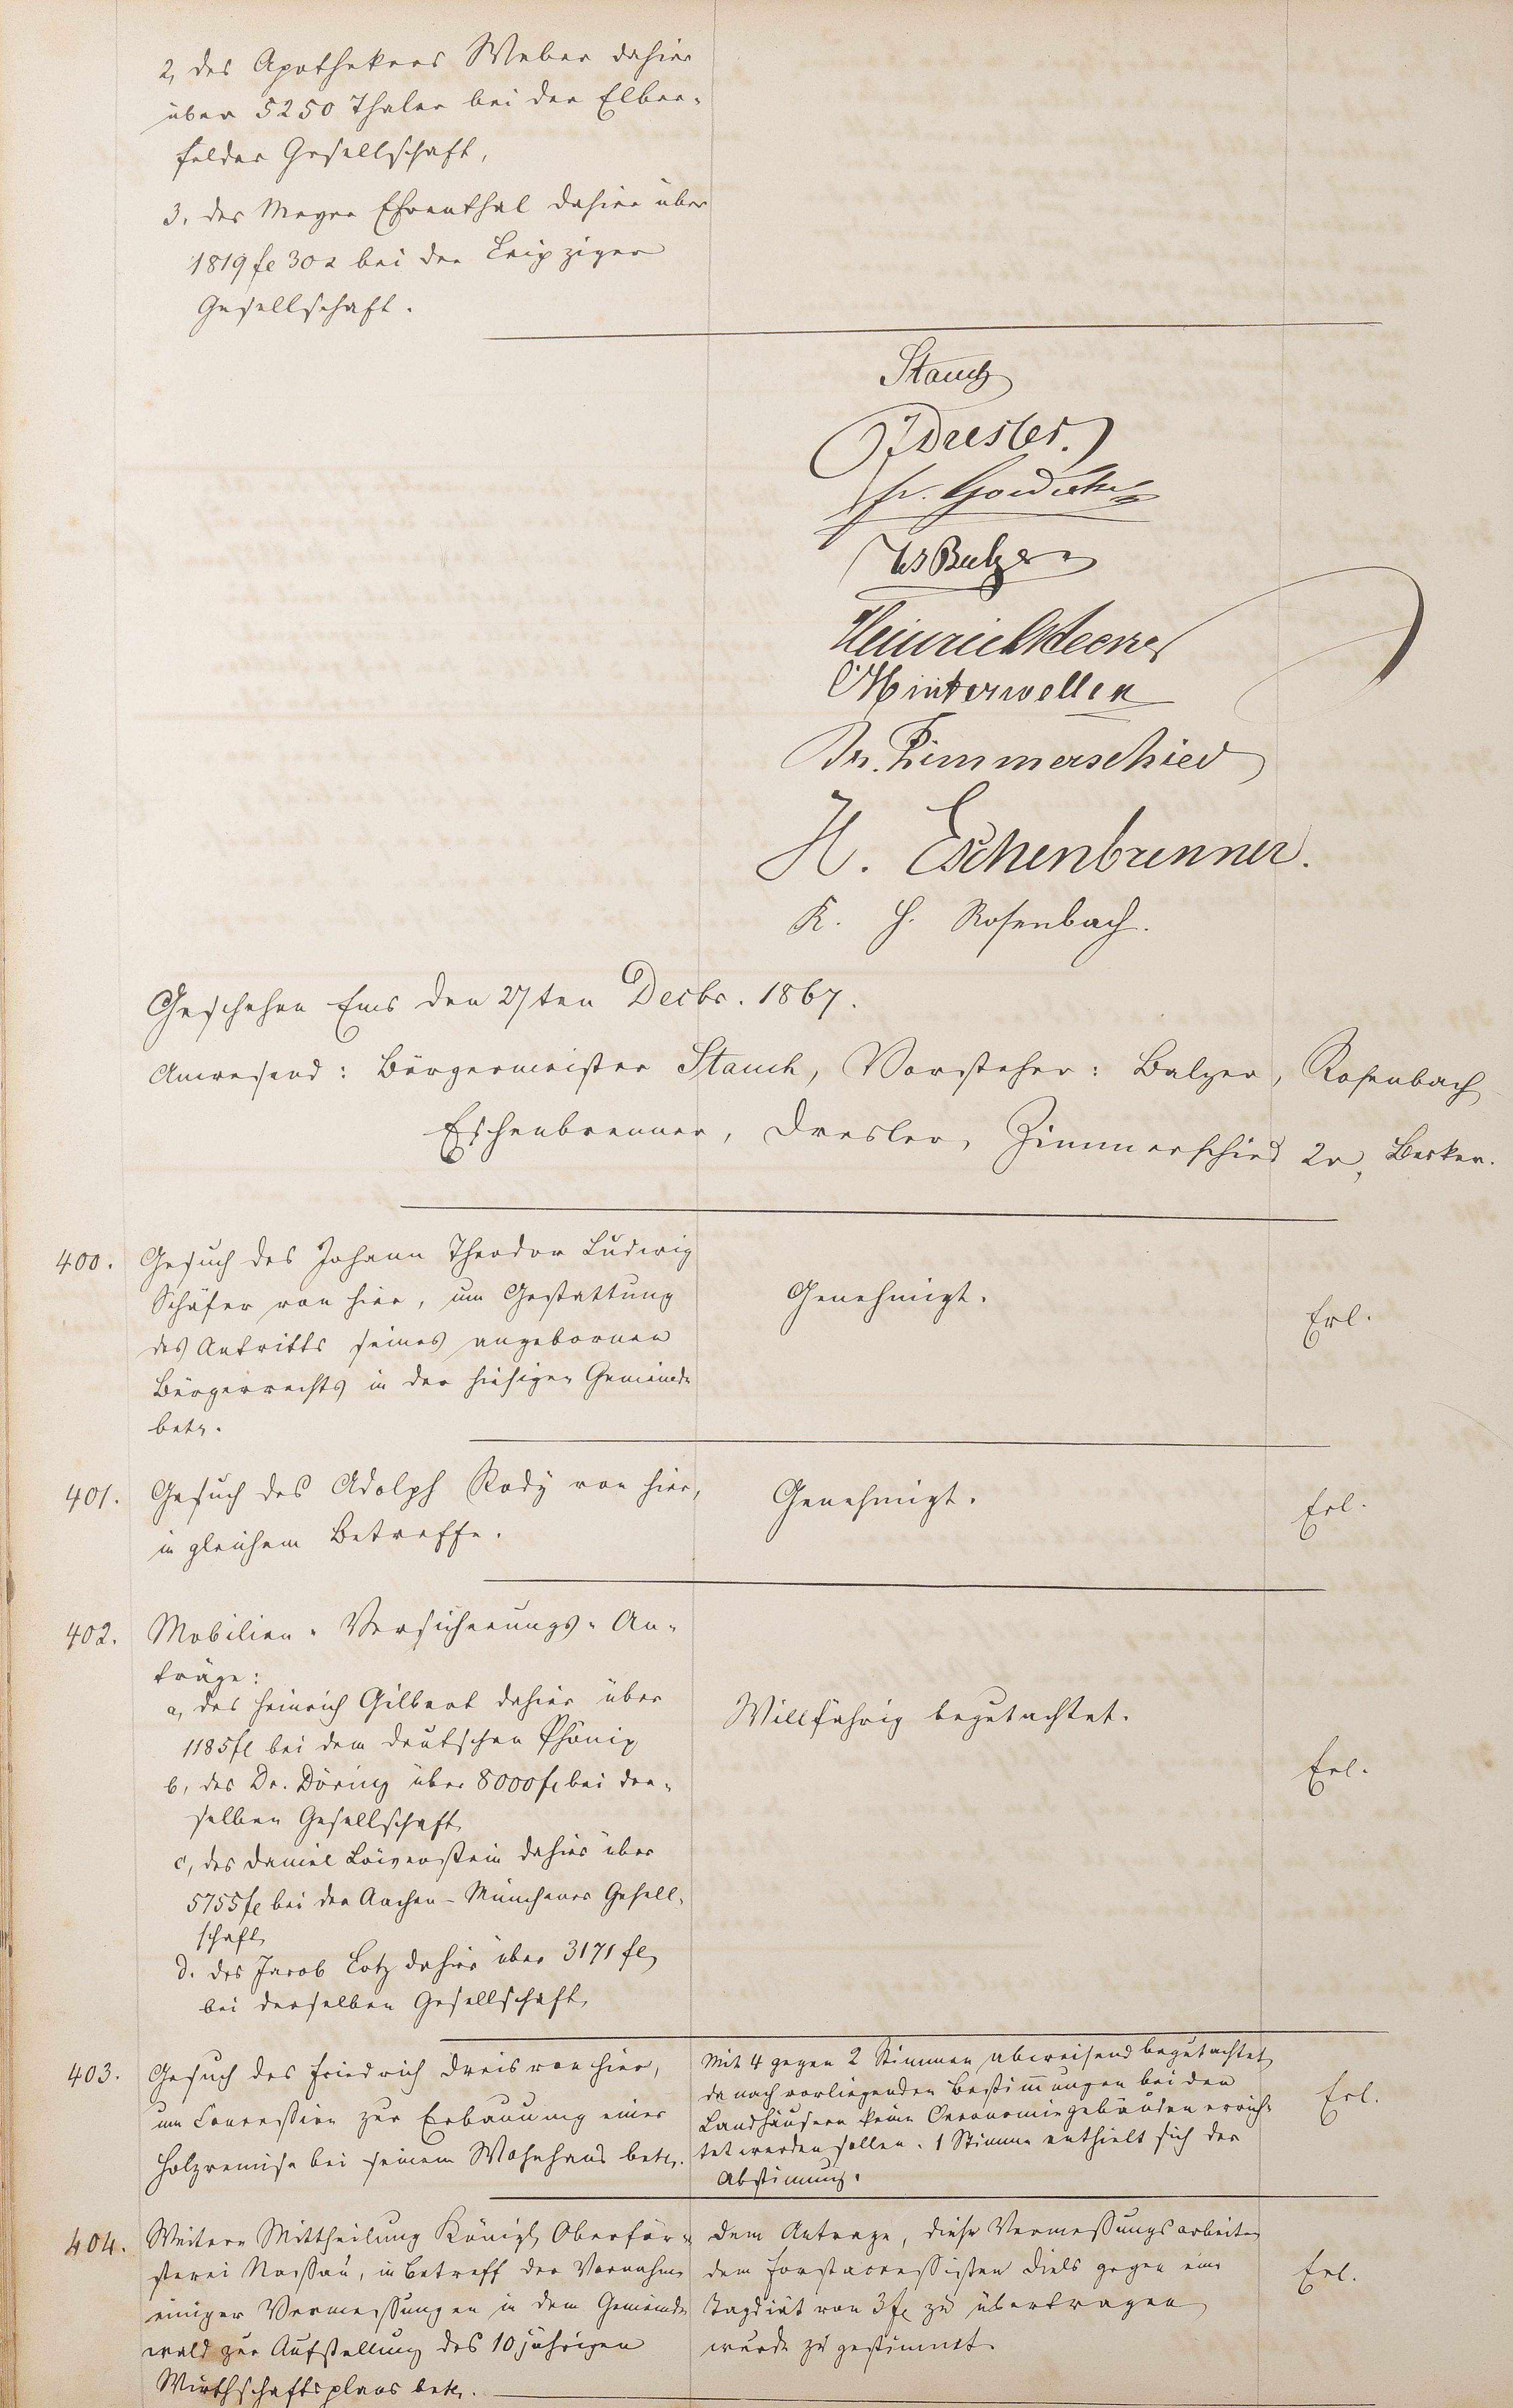 2, des Apothekers Weber dahier
über 5250 Thaler bei der Elber-
felder Gesellschaft,
3. des Meyer Ehrenthal dahier über
1819 fl 30 x bei der Leipziger
Gesellschaft.
Stauch
Dresler.
fr.
Balzer
Heinrich Becker
Hinterwellen
Zimmerschied
H. Eschenbrenner.
K. H. Rosenbach.
Geschehen Ems den 27ten Decbr. 1867.
Anwesend: Bürgermeister Stauch, Vorsteher: Balzer, Rosenbach
Eschenbrenner, Dresler, Zimmerschied 2r, Becker.
400. Gesuch des Johann Theodor Ludwig
Schäfer von hier, um Gestattung
des Antritts seines angebornen
Bürgerrechts in der hiesigen Gemeinde
betr.
Genehmigt.
Erl.
401. Gesuch des Adolph Rody von hier,
in gleichem Betreffe.
Genehmigt.
Erl.
402. Mobilien-Versicherungs-An-
träge:
a, des Heinrich Gilbert dahier über
1185 fl bei dem deutschen Phönix
b, des Dr. Döring über 8000 fl bei der-
selben Gesellschaft
c, des Daniel Löwenstein dahier über
5755 fl bei der Aachen-Münchener Gesell-
schaft
d. des Jacob Lotz dahier über 3171 fl
bei derselben Gesellschaft,
Willfährig begutachtet.
Erl.
403. Gesuch des Friedrich Dreis von hier,
um Concession zur Erbauung einer
Holzremise bei seinem Wohnhaus betr.
Mit 4 gegen 2 Stimmen abweisend begutachtet
da nach vorliegenden Bestimungen bei den
Landhäusern keine Oeconomiegebäuden errich-
tet werden sollen. 1 Stimme enthielt sich der
Abstimung.
Erl.
404. Weitere Mittheilung Königl. Oberför-
sterei Nassau, in betreff der Vornahme
einiger Vermessungen in dem Gemeinde
wald zur Aufstellung des 10 jährigen
Wirthschaftsplans betr.
Dem Antrage, diese Vermessungsarbeiten
dem Forstaccessisten Diels gegen eine
Tagdiät von 3 fl zu übertragen
wurde zu gestimmt.
Erl.